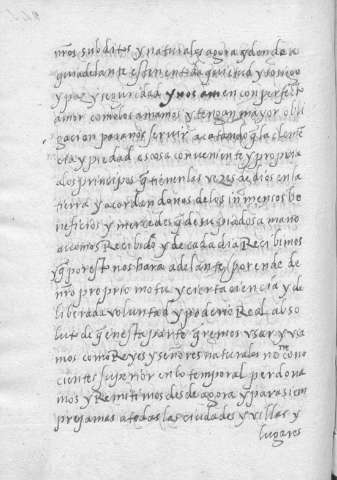 nr̃os subditos y naturales agora y donde a
qui adelante esten en toda quietud y sosiego
y paz y seguridad y nos amen con perfecto
amor como los amamos y tengan mayor obli
gacion para nos servir acatando q̃ la clemẽ
cia y piedad es cosa conveniente y propria
a los principes q̃ tienen las vezes de dios en la
tierra y acordandonos de los inmensos be
neficios y mercedes q̃ de su piadosa mano
avemos Recibido y de cada dia Recibimos
y q̃ por esto nos hara adelante por ende de
nr̃o proprio motu y cierta ciencia y de
liberada voluntad y poderio Real abso
luto de q̃ en esta parte queremos vsar y vsa
mos como Reyes y señores naturales no Reco
nocientes superior en lo temporal perdona
mos y Remitimos desde agora y para siem
pre jamas a todas las ciudades y villas y
lugares